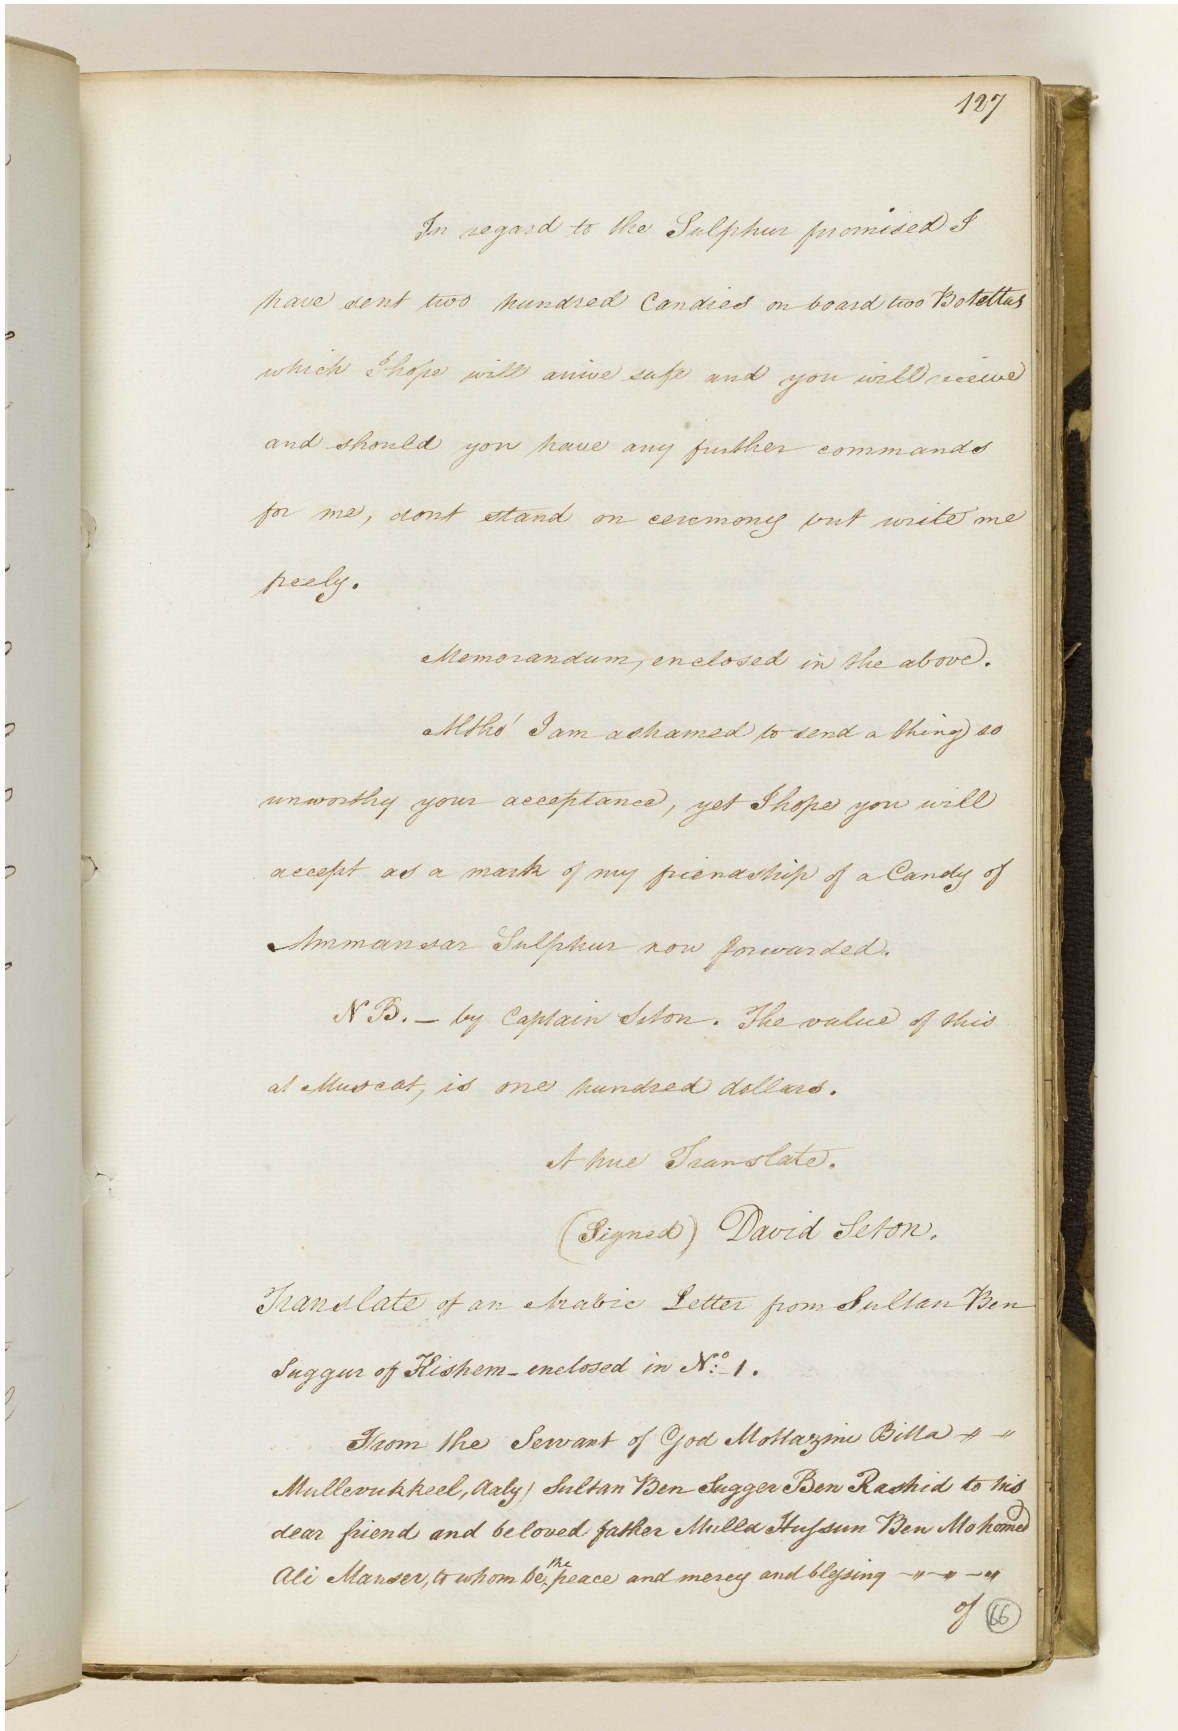 127
In regard to the Sulphur promised I
have sent two hundred Candies on board two Botellas
which I hope will arrive safe and you will receive
and should you have any further commands
for me, dont stand on ceremony but write me
freely.
Memorandum, enclosed in the above.
Altho' I am ashamed to send a thing so
unworthy your acceptance, yet I hope you will
accept as a mark of my friendship of a Candy of
Ammansar Sulphur now forwarded.
N B. — by Captain Seton. The value of this
at Muscat, is one hundred dollars.
A true Translate.
(Signed) David Seton.
Translate of an Arabic Letter from Sultan Ben
Suggur of Kishem - enclosed in No. 1.
From the Servant of God Mottazim Billa
Mullevukkeel, Aaly) Sultan Ben Sugger Ben Rashid to his
dear friend and beloved father Mulla Hussun Ben Mohomed
Ali Manser, to whom be the peace and mercy and blessing
of 66